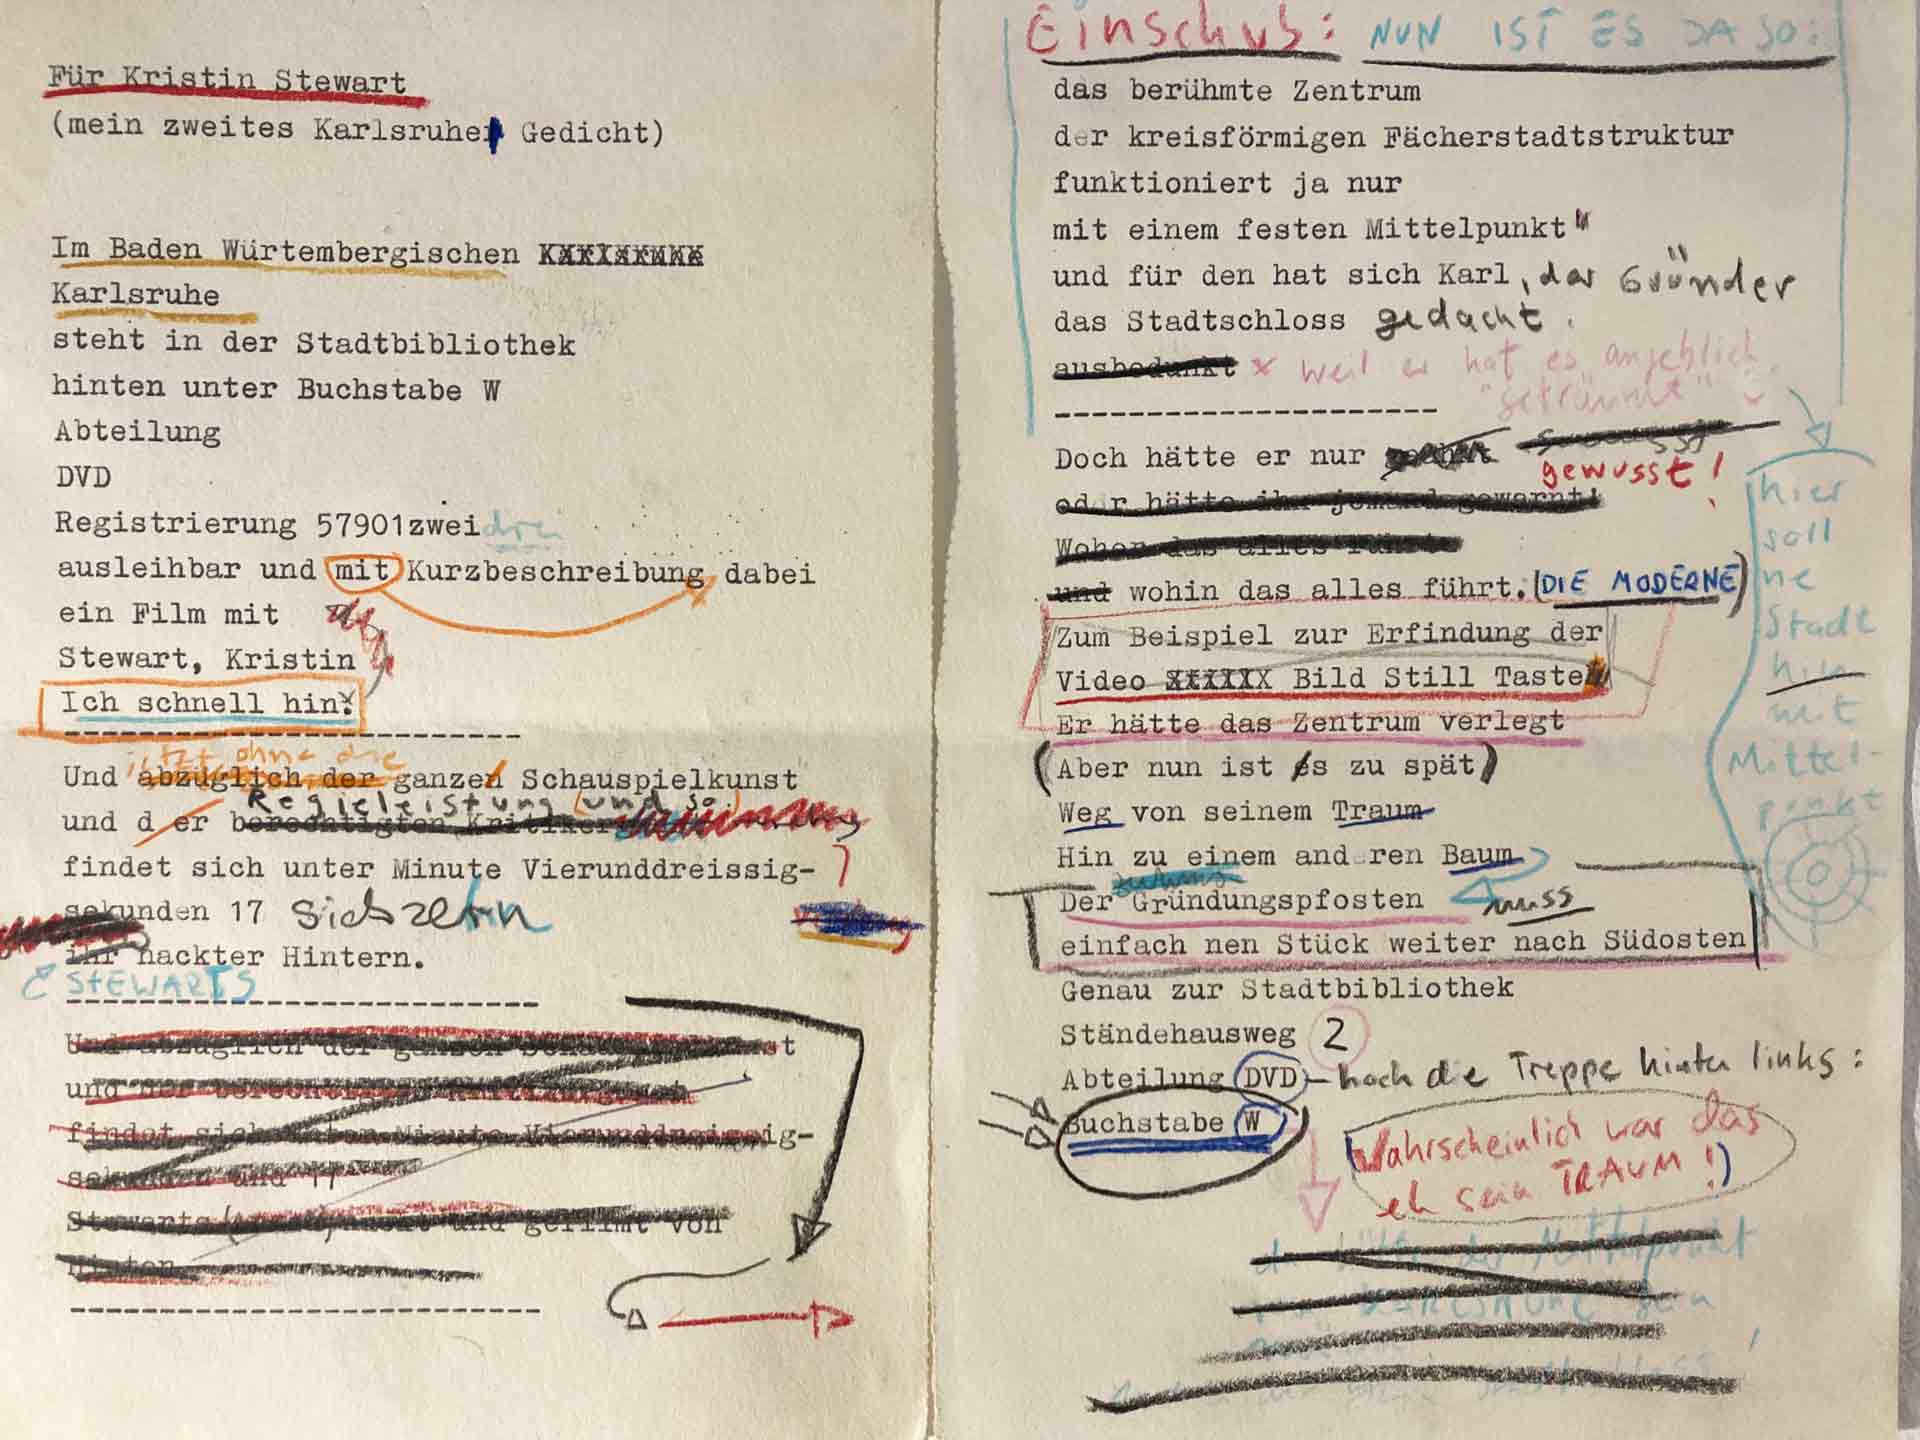 Für Kristin Stewart
(mein zweites Karlsruher Gedicht)
Im Baden Würtembergischen
Karlsruhe
steht in der Stadtbibliothek
hinten unter Buchstabe W
Abteilung
DVD
Registrierung 57901zwei drei
ausleihbar und mit Kurzbeschreibung dabei
ein Film mit
Stewart, Kristin
Ich schnell hin!
-------------------------
jetzt ohne die
Und abzüglich der ganzen Schauspielkunst
Regieleistung (und so)
und d er berechtigten Kritiker
findet sich unter Minute Vierunddreissig-
sekunden 17 Siebzehn
ihr nackter Hintern.
STEWARTS
--------------------------
Und abzüglich der ganzen Schauspielkunst
und der berechtigten
findet sich unter Minute Vierunddreissig-
sekunden und 17
Stewarts nackt und gefilmt von
Hinten
--------------------------
Einschub: NUN IST ES JA SO:
das berühmte Zentrum
der kreisförmigen Fächerstadtstruktur
funktioniert ja nur
mit einem festen Mittelpunkt
und für den hat sich Karl, der Gründer
das Stadtschloss gedacht.
ausbedunkt x weil er hat es angeblich
"geträumt"
---------------------
Doch hätte er nur gewusst!
oder hätte ihn jemand gewarnt!
Woher das alles führt
und wohin das alles führt. (DIE MODERNE)
Zum Beispiel zur Erfindung der
Video Bild Still Taste
Er hätte das Zentrum verlegt
(Aber nun ist es zu spät)
Weg von seinem Traum
Hin zu einem anderen Baum
Der Gründungspfosten muss
einfach nen Stück weiter nach Südosten
Genau zur Stadtbibliothek
Ständehausweg 2
Abteilung DVD – hoch die Treppe hinter links:
Buchstabe W
Wahrscheinlich war das
eh sein TRAUM!)
hier
soll
ne
Stadt
hin
mit
Mittel-
punkt